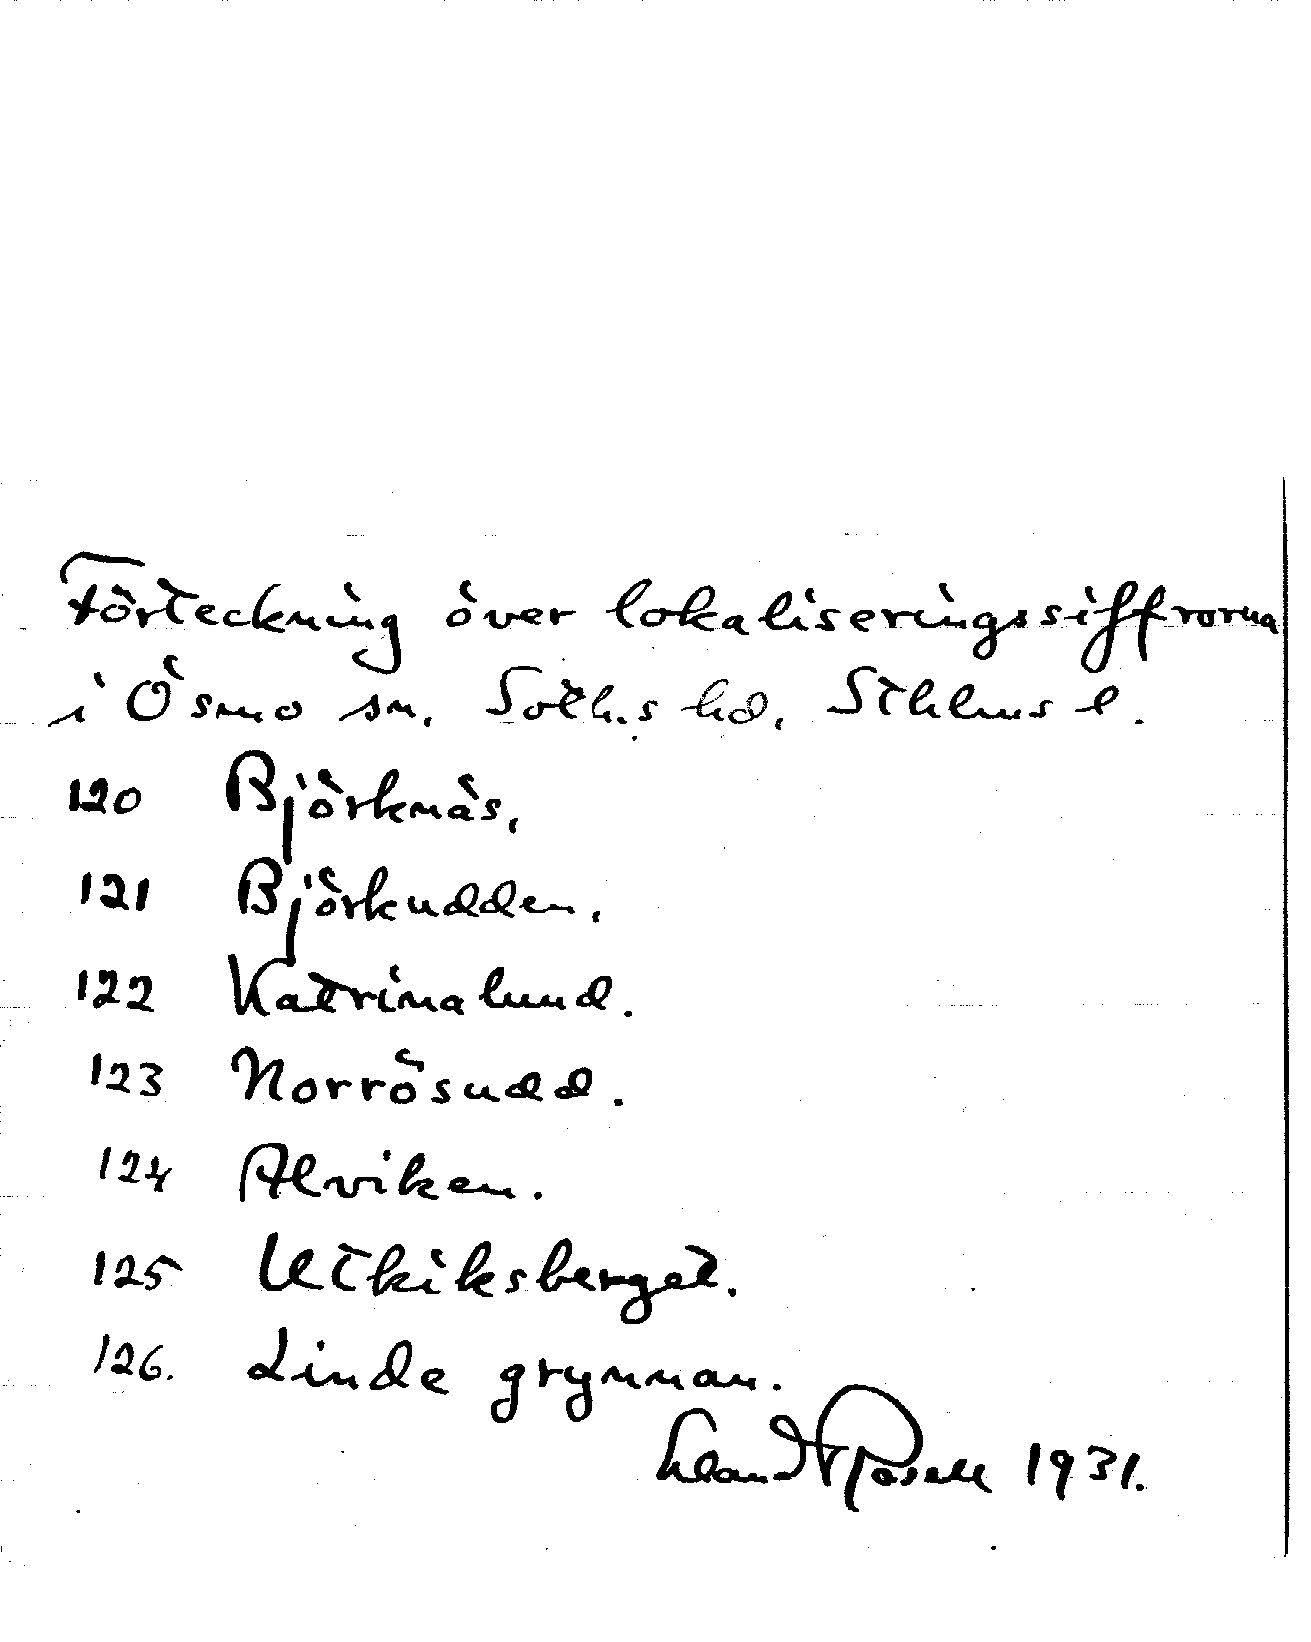 Förteckning över lokaliseringssiffrorna
i Ösmo sn. Soth.s hd. Sthlms l.
120 Björknäs.
121 Björkudden.
122 Katrinalund.
123 Norrösudd.
124 Alviken.
125 Utkiksberget.
126. Linde grynnan.
1931.